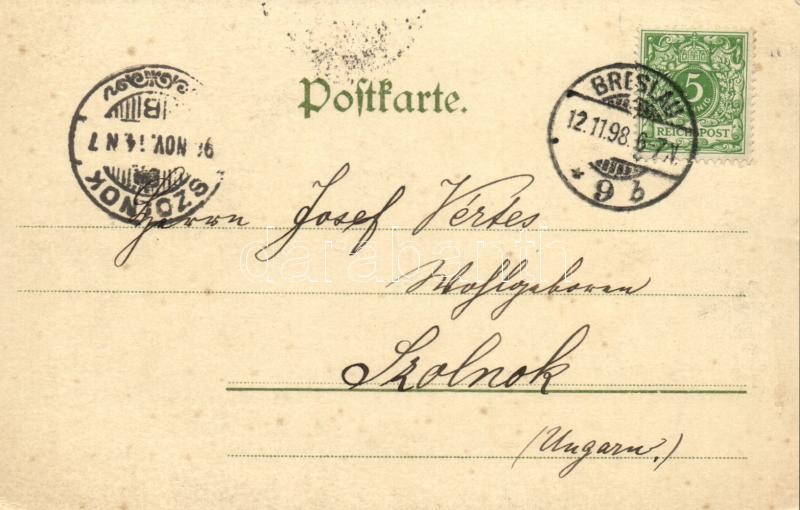 Postkarte.
BRESLAU
12.11.98. 6-7N
* 9 b
5
REICHSPOST
SZOLNOK
NOV. 14. N 7
B
Herrn Josef Vértes
Wohlgeboren
Szolnok
(Ungarn.)
darabanth